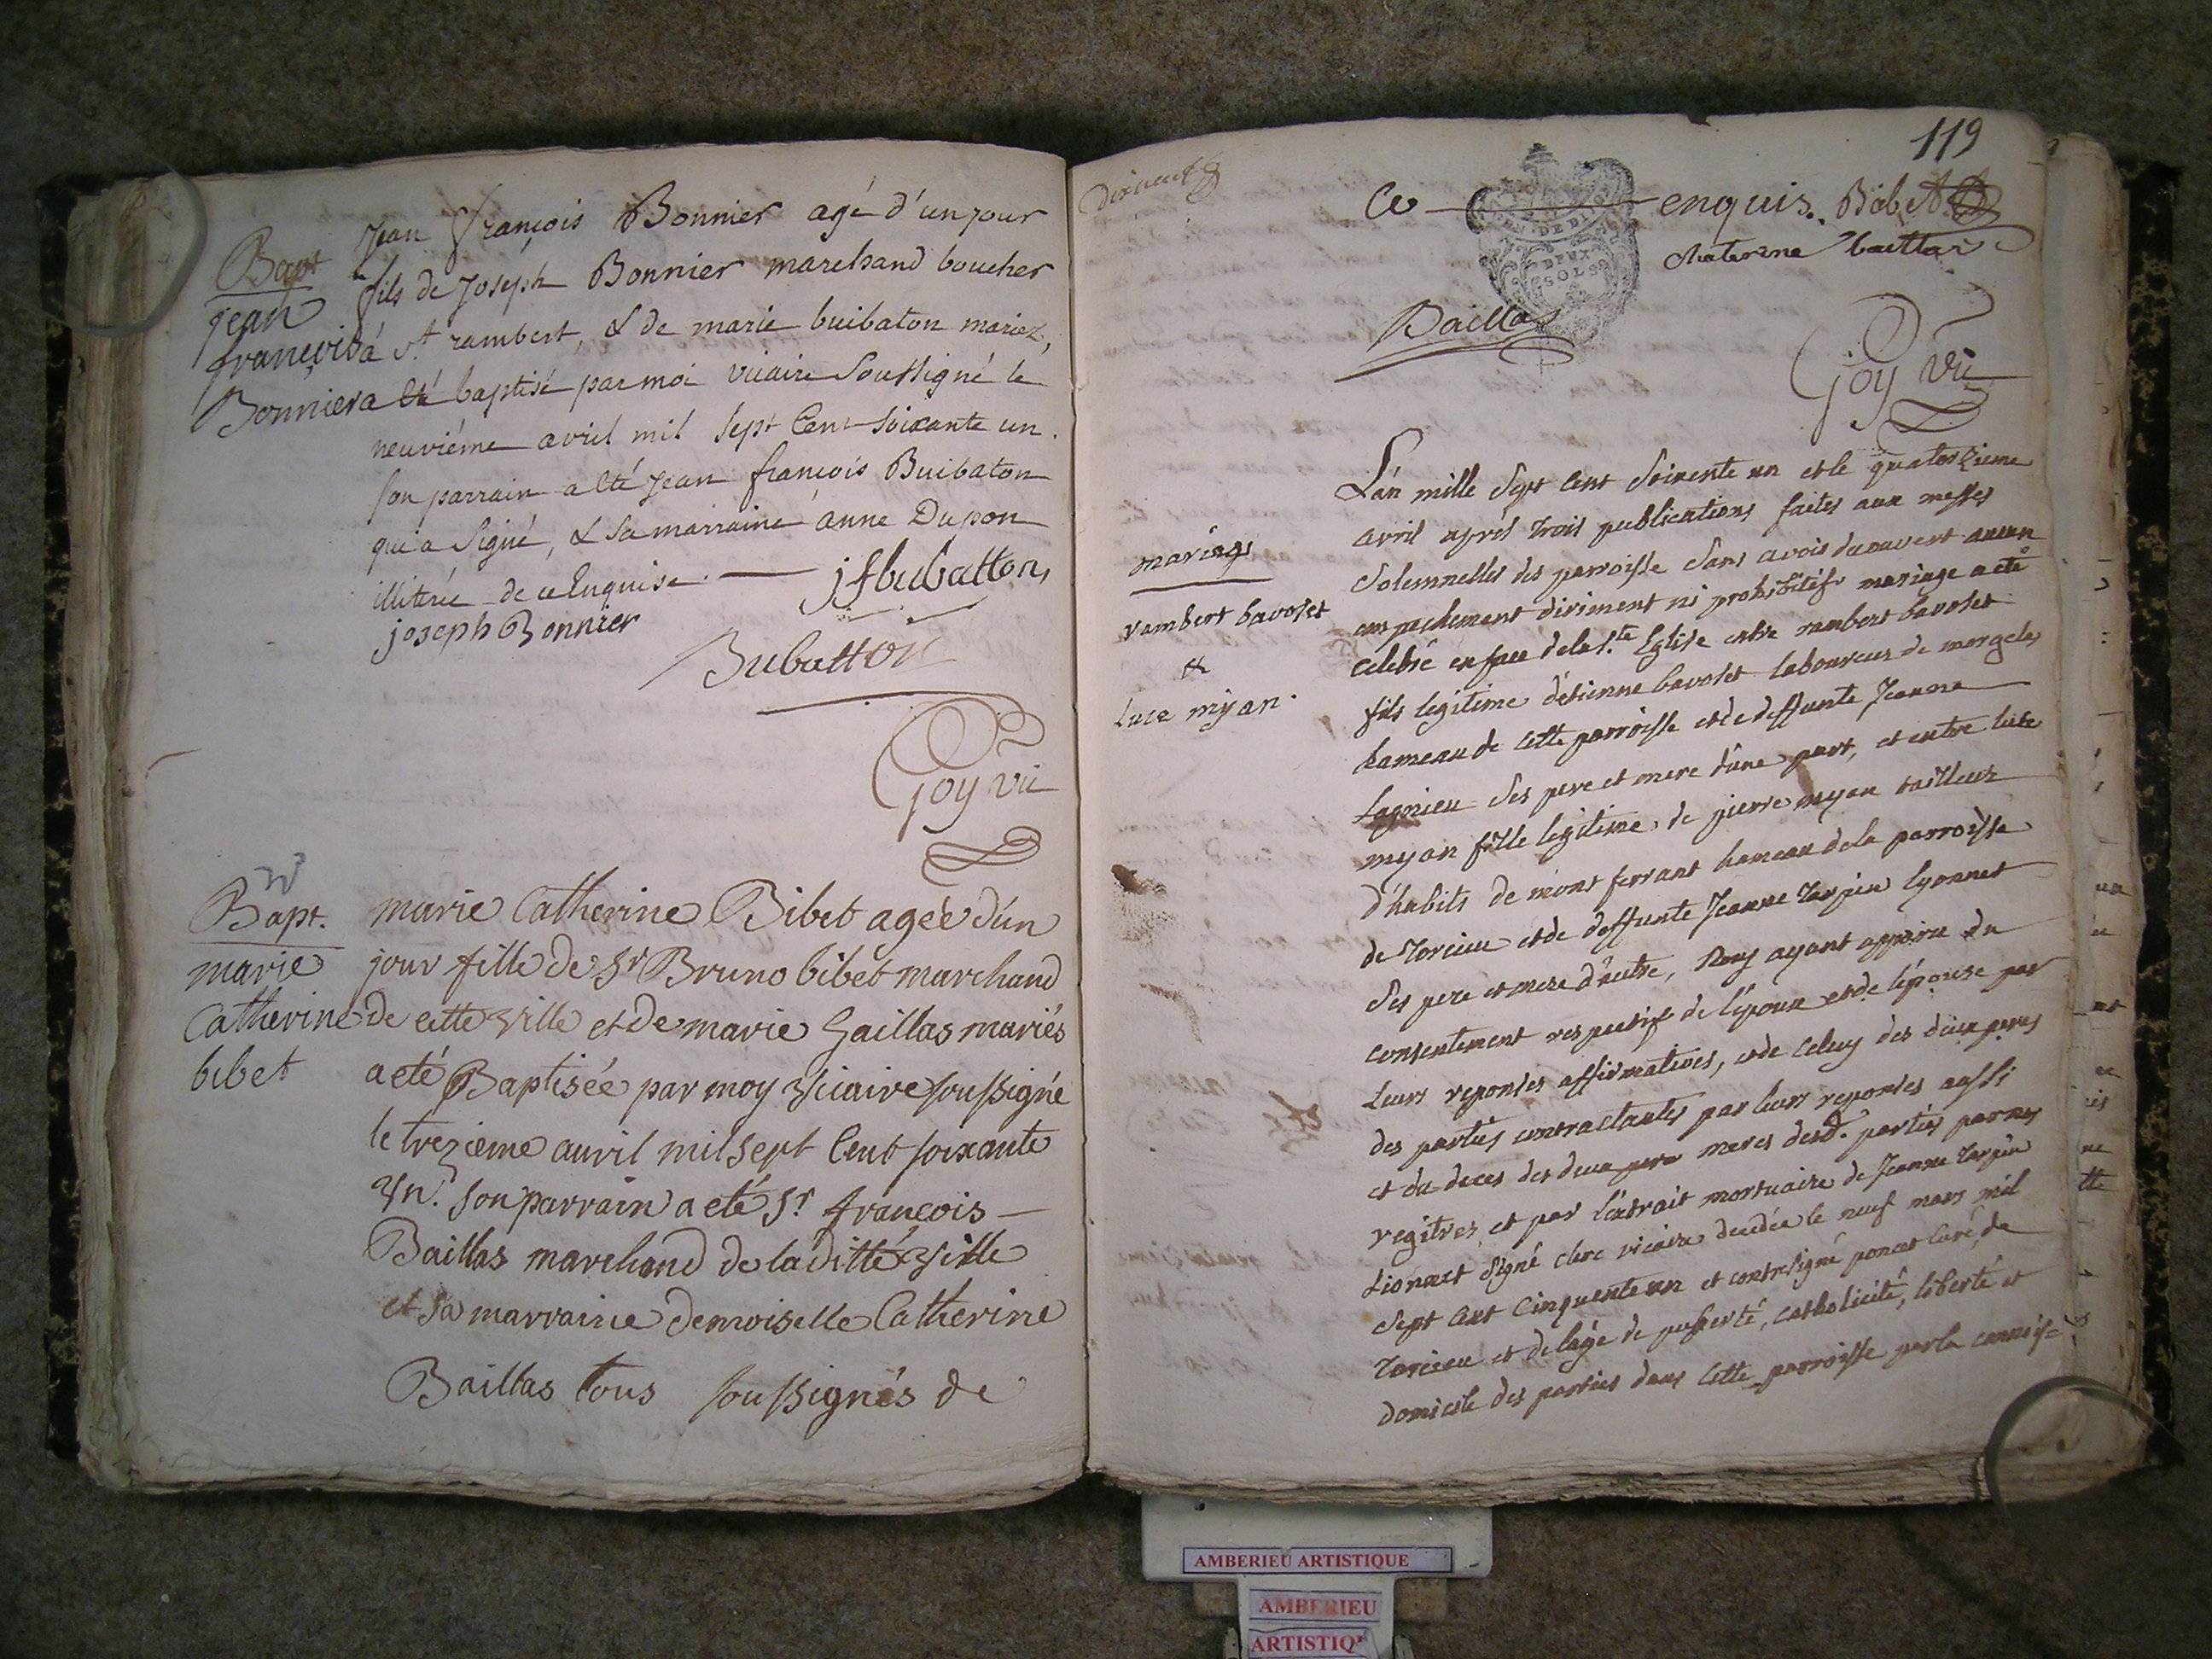 Bapt
jean
françois
Bonnier
Jean françois Bonnier agé d'un jour
fils de Joseph Bonnier marchand boucher
à st. rambert, & de marie buibaton mariez,
a été baptisé par moi vicaire Soussigné le
neuviéme avril mil Sept Cent Soixante un.
son parrain a été Jean françois Buibaton
qui a Signé, & sa marraine anne Dupon
illiterée de ce Enquise. jfbubatton,
joseph Bonnier
Bubatton
Goy vic
Bapt.
marie
Catherine
bibet
marie Catherine Bibet ageé d'un
jour fille de Sr Bruno bibet marchand
de cette ville et de marie Baillas mariés
a eté Baptisée par moy viciaire soussigné
le trezieme auvril mil sept Cent soixante
vn. Son parrain a eté Sr. françois
Baillas marchand de la ditte ville
et sa marraine demoiselle Catherine
Baillas tous soussignés de
119
Ce enquis. Bibet
DEUX
SOLS
chaterine baillas
Baillas
Goy vic
mariage
rambert bavoset
&
Luce myan.
L'an mille Sept Cent Soixente un et le quatorzieme
avril apres trois publications faites aux messes
Solemnelles des parroisse Sans avoir decouvert aucun
empechement diriment ni prohibitif mariage a eté
celebré en face de la Ste. Eglise entre rambert bavoset
fils legitime d'etienne bavoset laboureur de morgelas
hameau de cette parroisse et de deffunte Jeanne
Lagnieu Ses pere et mere d'une part, et entre luce
myan fille legitime de pierre myan tailleur
d'habits de mont ferrant hameau de la parroisse
de Torcieu et de deffunte Jeanne tarpin lyonnet
Ses pere et mere d'autre, Nous ayant apparu du
consentement respectif de l'epoux et de l'epouse par
Leurs reponses affirmatives, et de celuy des deux peres
des parties contractantes par leurs reponses aussi
et du deces des deux pere meres desd. parties par nos
regitres, et par l'extrait mortuaire de Jeanne tarpin
Lionnet Signé clerc vicaire decedée le neuf mars mil
Sept Cent Cinquente un et contresigné poncet Curé, de
Torcieu et de l'age de puberté, catholicité, liberté et
domicile des parties dans cette parroisse par la connois=
AMBERIEU ARTISTIQUE
AMBERIEU
ARTISTIQ